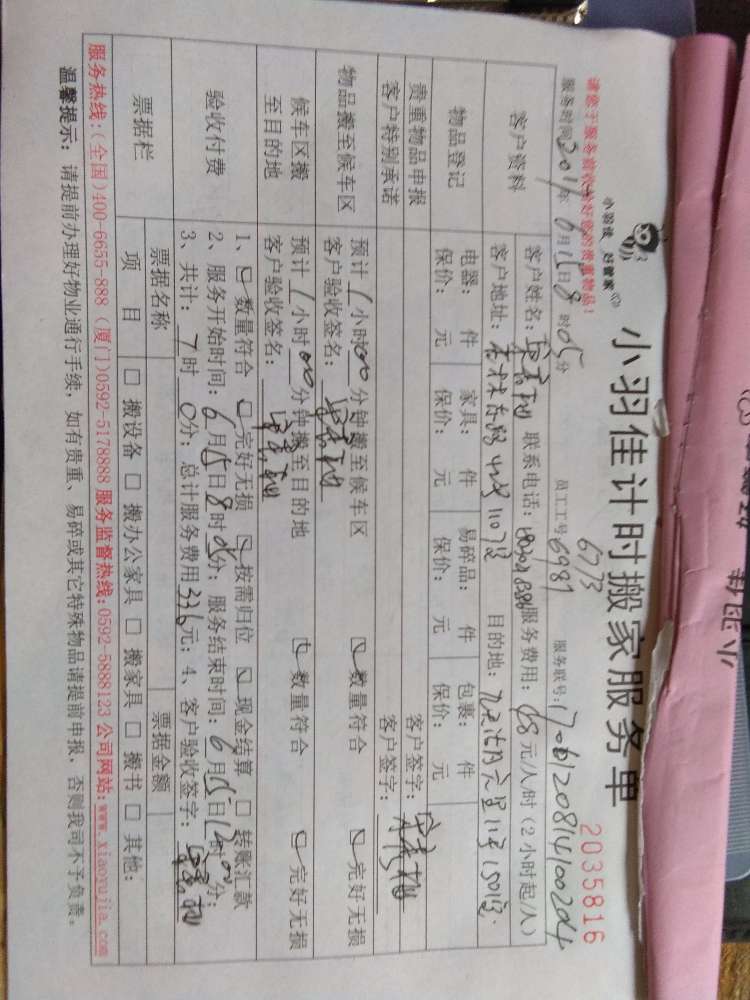 小羽佳计时搬家服务单
小羽佳 好管家
2035816
请您于服务前收拾好您的贵重物品！
服务时间2017年6月15日8时05分 员工工号6773 6987 服务联号:170612081410020４
客户资料
客户姓名: 联系电话: 服务费用:68元/人/时(2小时起/人)
客户地址: 目的地:
物品登记
电器: 件 家具: 件 易碎品: 件 包裹: 件
保价: 元 保价: 元 保价: 元 保价: 元
贵重物品申报 客户签字:
客户特别承诺 客户签字:
物品搬至候车区
预计1小时00分钟搬至候车区 数量符合 完好无损
客户验收签名:
候车区搬至目的地
预计1小时00分钟搬至目的地 数量符合 完好无损
客户验收签名:
验收付费
1、数量符合 完好无损 按需归位 现金结算 □ 转账汇款
2、服务开始时间:6月15日8时05分; 服务结束时间:6月15日12时00分;
3、共计:7时0分; 总计服务费用336元; 4、客户验收签字:
票据栏 票据名称 票据金额
项目 □ 搬设备 □ 搬办公家具 □ 搬家具 □ 搬书 □ 其他:
服务热线:(全国)400-6655-888 (厦门)0592-5178888 服务监督热线:0592-5888123 公司网站:www.xiaoyujia.com
温馨提示: 请提前办理好物业通行手续, 如有贵重、易碎或其它特殊物品请提前申报, 否则我司不予负责。